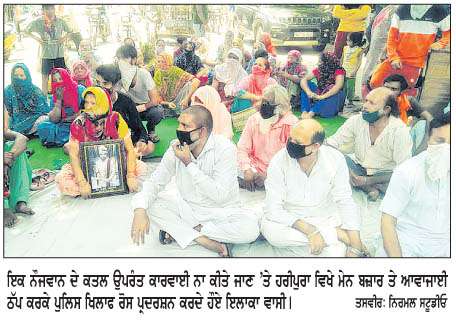 ਇਕ ਨੌਜਵਾਨ ਦੇ ਕਤਲ ਉਪਰੰਤ ਕਾਰਵਾਈ ਨਾ ਕੀਤੇ ਜਾਣ 'ਤੇ ਹਰੀਪੁਰਾ ਵਿਖੇ ਮੇਨ ਬਜ਼ਾਰ ਤੇ ਆਵਾਜਾਈ
ਠੱਪ ਕਰਕੇ ਪੁਲਿਸ ਖਿਲਾਫ ਰੋਸ ਪ੍ਰਦਰਸ਼ਨ ਕਰਦੇ ਹੋਏ ਇਲਾਕਾ ਵਾਸੀ। ਤਸਵੀਰ: ਨਿਰਮਲ ਸਟੂਡੀਓ